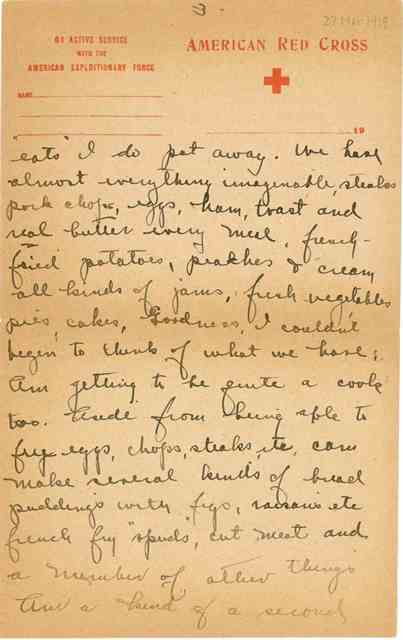 3
27 Mar 1919
ON ACTIVE SERVICE
WITH THE
AMERICAN EXPEDITIONARY FORCE
AMERICAN RED CROSS
NAME
19
"eats" I do put away. We have
almost everything imagenable, steaks
pork chops, eggs, ham, toast and
real butter every meal, french-
fried potatoes, peaches & cream
all kinds of jams, fresh vegetables
pies, cakes, Goodness, I couldn't
begin to think of what we have;
Am getting to be quite a cook
too. Aside from being able to
fry eggs, chops, steaks, etc, can
make several kinds of bread
puddings with figs, raisins etc
french fry "spuds", cut meat and
a number of other things
And a kind of a second